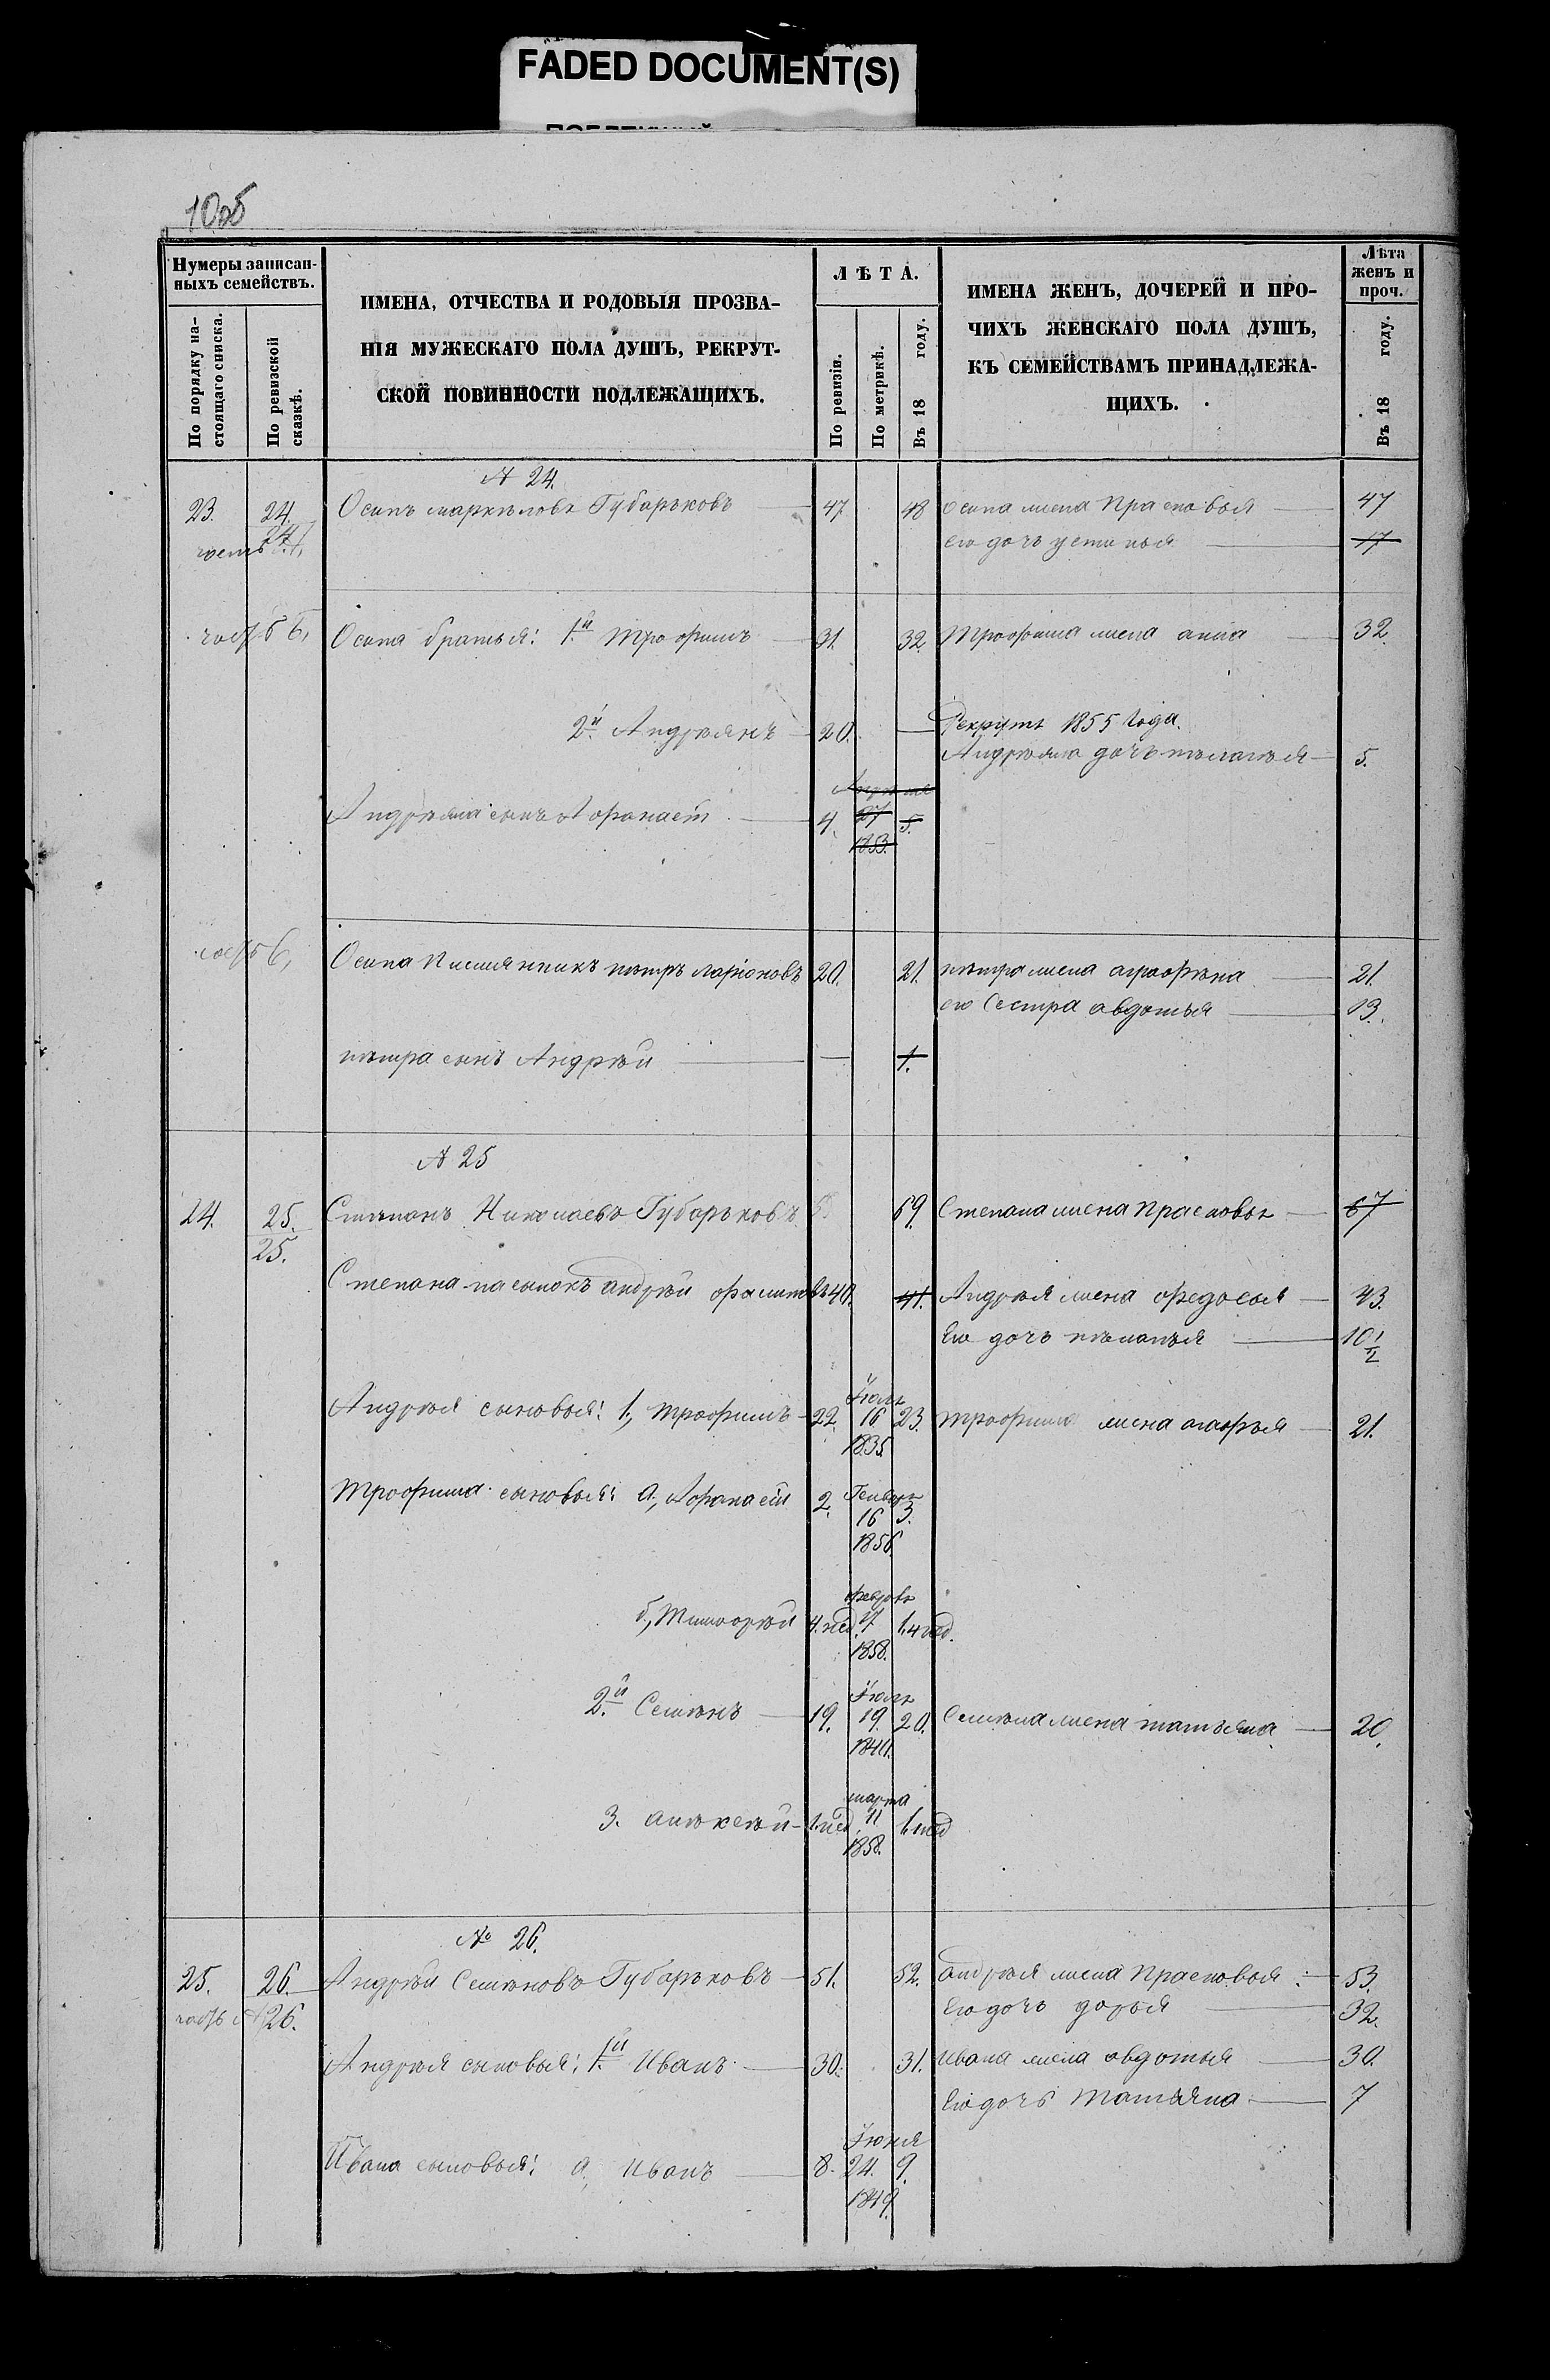 FADED DOCUMENT(S)
10об
Нумеры записан-
ныхъ семействъ.
По порядку на-
стоящаго списка.
По ревизской
сказкѣ.
ИМЕНА, ОТЧЕСТВА И РОДОВЫЯ ПРОЗВА-
НІЯ МУЖЕСКАГО ПОЛА ДУШЪ, РЕКРУТ-
СКОЙ ПОВИННОСТИ ПОДЛЕЖАЩИХЪ.
ЛѢТА.
По ревизіи.
По метрикѣ.
Въ 18 году.
ИМЕНА ЖЕНЪ, ДОЧЕРЕЙ И ПРО-
ЧИХЪ ЖЕНСКАГО ПОЛА ДУШЪ,
КЪ СЕМЕЙСТВАМЪ ПРИНАДЛЕЖА-
ЩИХЪ.
Лѣта
женъ и
проч.
Въ 18 году.
№ 24.
23. 24. Осипъ маркѣловъ Губарьковъ 47 48 осипа жена Прасковья 47
24
его дочь устинья 17
Осипа братья: 1й Трофимъ 31. 32. Трофима жена анна 32.
2й Андрѣянъ 20. — Рекрутъ 1855 года.
Андрѣяна дочь пѣлагѣя 5.
Андрѣяна сынъ Афонасій 4. 27 5.
1853.
Осипа племянникъ пѣтръ ларіоновъ 20. 21. пѣтра жена аграфѣна 21.
его Сестра авдотья 13.
пѣтра сынъ Андрѣй — 1.
№ 25
24. 25. Стѣпанъ Николаевъ Губарьковъ 69. Степана жена Прасковья 67
25.
Степана пасынокъ андрѣй 40. 41. Андрѣя жена федосья 43.
Его дочь пѣлагѣя 10 1/2
Андрѣя сыновья: 1, трофимъ 22. Іюля 16 1835 23. трофима жена агафья 21.
Трофима сыновья: а, Афонасій 2. Генваря 16 1856 3.
б, Тимофѣй 4. нед. февраля 1858. 1.4 нед.
2й Семѣнъ 19. Іюля 19. 1840. 20. Семѣна жена татьяна 20.
3. алѣксѣй 1. нед. марта 11 1858. 1.1 нед
№ 26.
25. 26. Андрѣй Семѣновъ Губарьковъ 51. 52. андрѣя жена Прасковья 53.
26. Его дочь дарья 32.
Андрѣя сыновья: 1й Иванъ 30. 31. Ивана жена авдотья 30.
Его дочь Татьяна 7
Ивана сыновья: а, Иванъ 8. Іюня 24. 1849. 9.